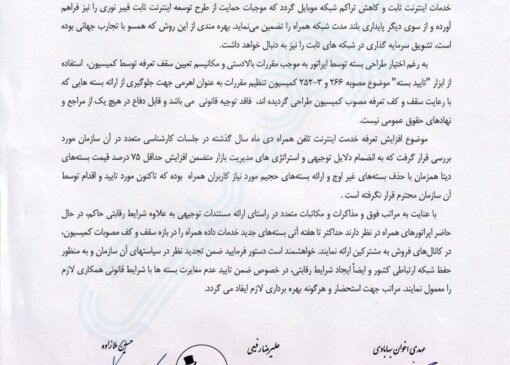 خدمات اینترنت ثابت و کاهش تراکم شبکه موبایل گردد که موجبات حمایت از طرح توسعه اینترنت ثابت فیبر نوری را نیز فراهم
آورده و از سوی دیگر پایداری بلند مدت شبکه همراه را تضمین می‌نماید. بهره مندی از این روش که همسو با تجارب جهانی بوده
است، تشویق سرمایه گذاری در شبکه های ثابت را نیز به دنبال خواهد داشت.
به رغم اختیار طراحی بسته توسط اپراتور به موجب مقررات بالادستی و مکانیسم تعیین سقف تعرفه توسط کمیسیون، استفاده
از ابزار "تایید بسته" موضوع مصوبه ۲۶۶ و ۳-۲۵۲ کمیسیون تنظیم مقررات به عنوان اهرمی جهت جلوگیری از ارائه بسته هایی که
با رعایت سقف و کف تعرفه مصوب کمیسیون طراحی گردیده اند، فاقد توجیه قانونی می باشد و قابل دفاع در هیچ یک از مراجع و
نهادهای حقوق عمومی نیست.
موضوع افزایش تعرفه خدمت اینترنت تلفن همراه دی ماه سال گذشته در جلسات کارشناسی متعدد در آن سازمان مورد
بررسی قرار گرفت که به انضمام دلایل توجیهی و استراتژی های مدیریت بازار متضمن افزایش حداقل ۷۵ درصد قیمت بسته‌های
دیتا همزمان با حذف بسته‌های غیر اوج و ارائه بسته‌های حجیم مورد نیاز کاربران همراه بوده که تاکنون مورد تایید و اقدام توسط
آن سازمان محترم قرار نگرفته است .
با عنایت به مراتب فوق و مذاکرات و مکاتبات متعدد در راستای ارائه مستندات توجیهی به علاوه شرایط رقابتی حاکم، در حال
حاضر اپراتورهای همراه در نظر دارند حداکثر تا هفته آتی بسته‌های جدید خدمات داده همراه را در بازه سقف و کف مصوبات کمیسیون،
در کانال‌های فروش به مشترکین ارائه نمایند. خواهشمند است دستور فرمایید ضمن تجدید نظر در سیاستهای آن سازمان و به منظور
حفظ شبکه ارتباطی کشور و ایضاً ایجاد شرایط رقابتی، در خصوص ضمن تایید عدم مغایرت بسته ها با شرایط قانونی همکاری لازم
را معمول نمایند. مراتب جهت استحضار و هرگونه بهره برداری لازم ایفاد می گردد.
مهدی اخوان بهابادی علیرضا رفیعی حسین ملازاده